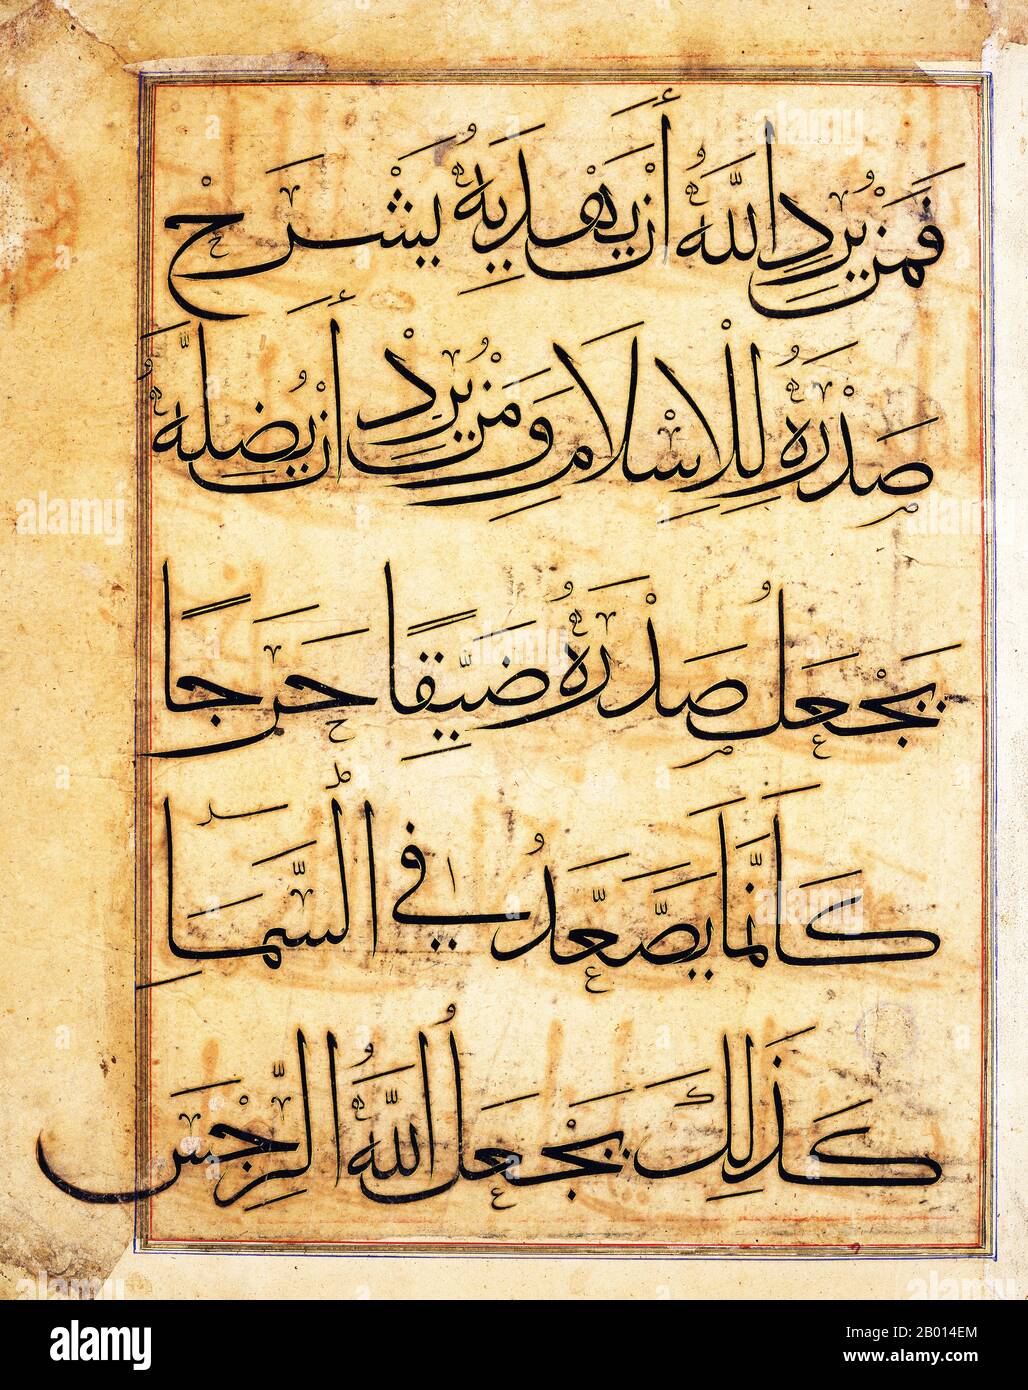 فَمَنْ يُرِدِ اللَّهُ أَنْ يَهْدِيَهُ يَشْرَحْ
صَدْرَهُ لِلْإِسْلَامِ وَمَنْ يُرِدْ أَنْ يُضِلَّهُ
يَجْعَلْ صَدْرَهُ ضَيِّقًا حَرَجًا
كَأَنَّمَا يَصَّعَّدُ فِي السَّمَاءِ
كَذَلِكَ يَجْعَلُ اللَّهُ الرِّجْسَ
alamy
alamy
Image ID: 2B014EM
www.alamy.com